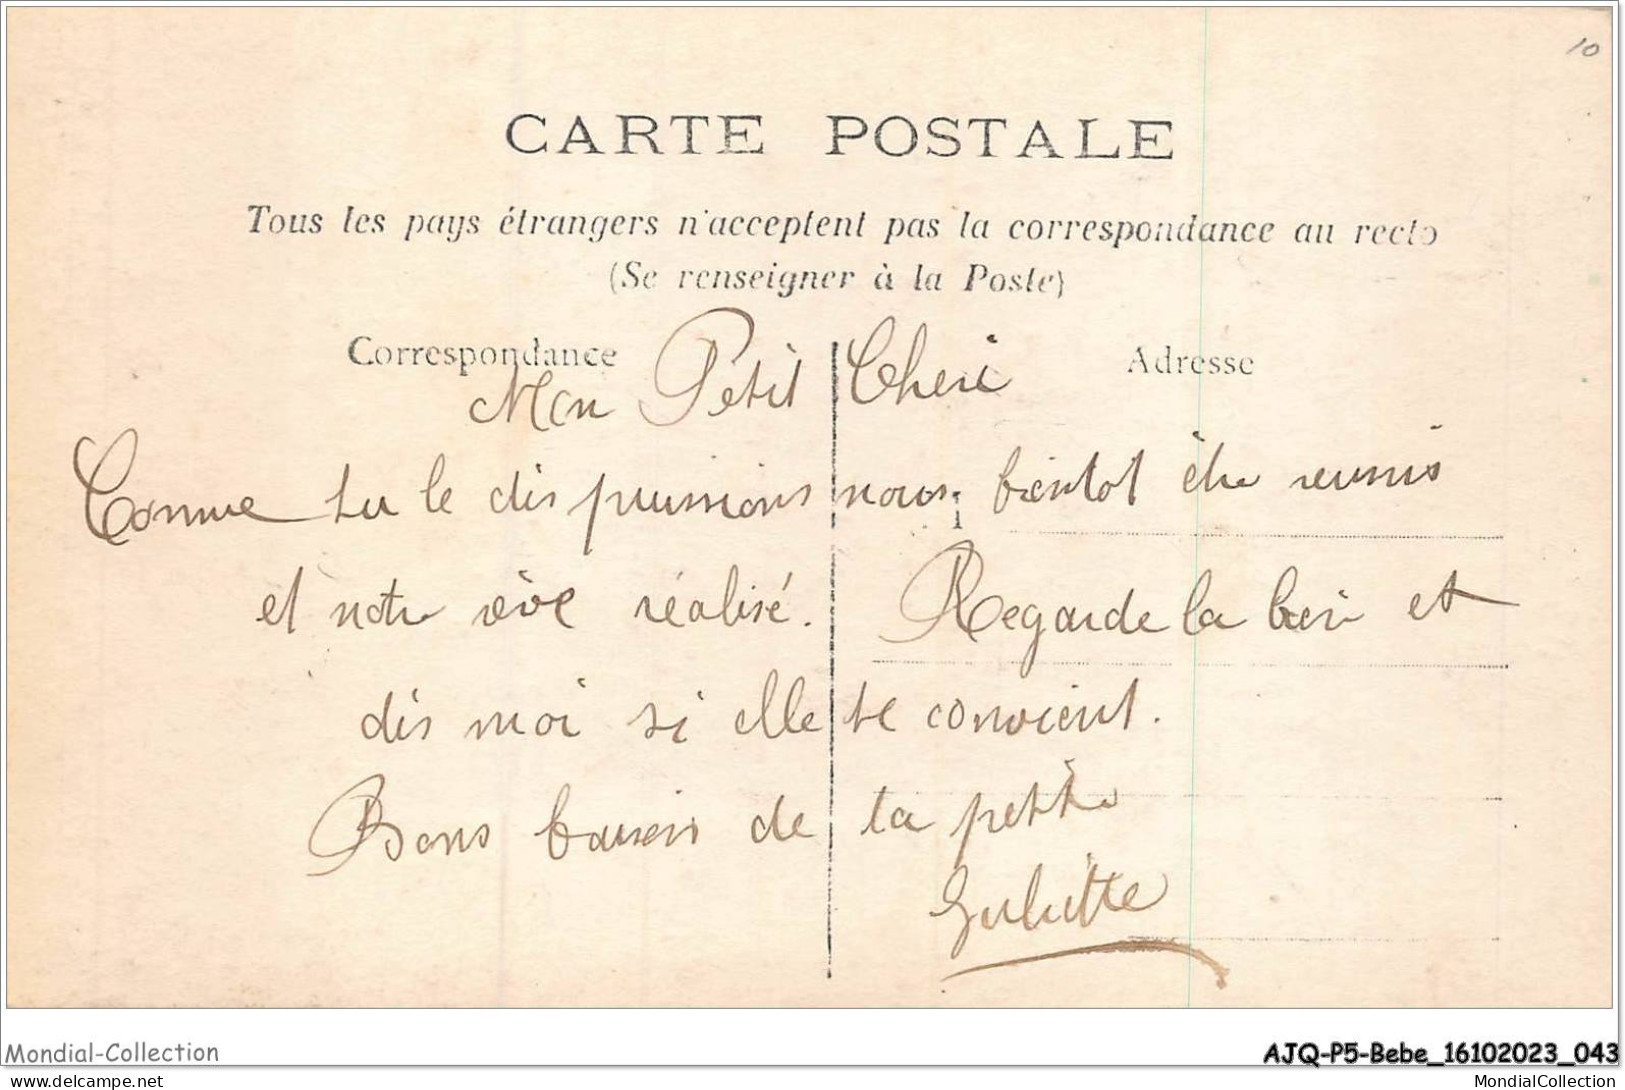 10
CARTE POSTALE
Tous les pays étrangers n'acceptent pas la correspondance au recto
(Se renseigner à la Poste)
Correspondance
Adresse
Mon Petit Cheri
Comme tu le dis puissions nous bientot être reunis
et notre rève réalisé. Regarde la bien et
dis moi si elle te convient.
Bons baisers de ta petite
Juliette
Mondial-Collection
AJQ-P5-Bebe_16102023_043
delcampe.net
MondialCollection